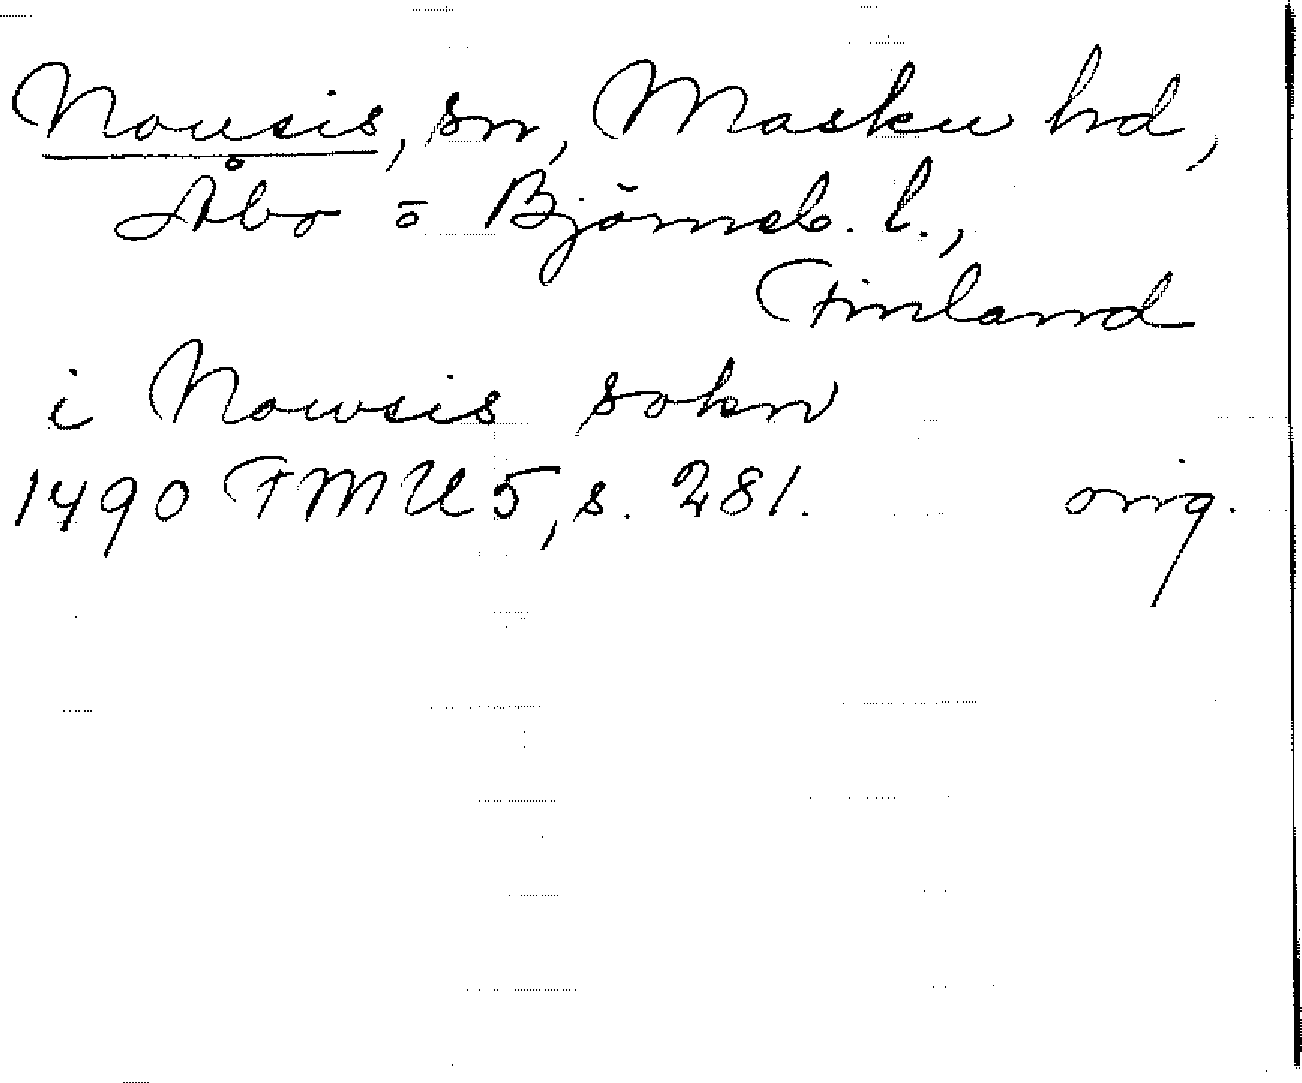 Nousis, sn, Masku hd,
Åbo o Björneb. l.,
Finland
i Nowsis sokn
1490 FMU 5, s. 281. orig.